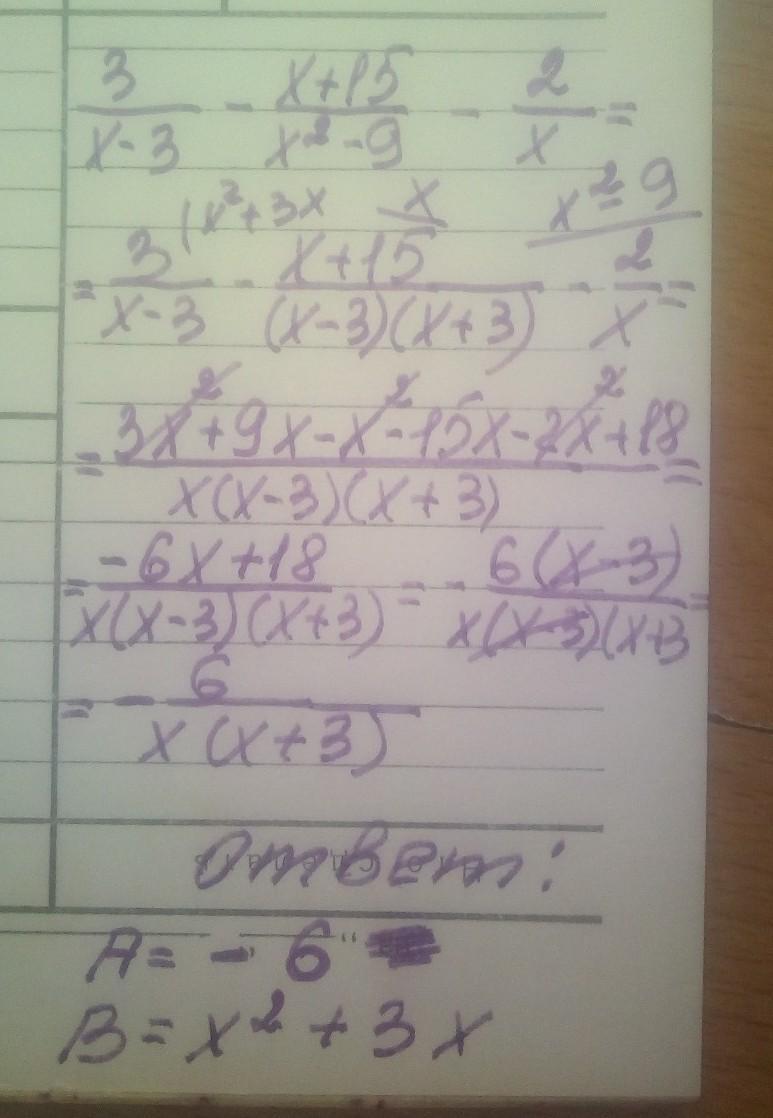 3/(x-3) - (x+15)/(x²-9) - 2/x =
(x²+3x x x²-9
= 3/(x-3) - (x+15)/((x-3)(x+3)) - 2/x =
= (3x²+9x-x²-15x-2x²+18)/(x(x-3)(x+3)) =
= (-6x+18)/(x(x-3)(x+3)) = - 6(x-3)/(x(x-3)(x+3 =
= - 6/(x(x+3))
ответ:
A = - 6
B = x² + 3x